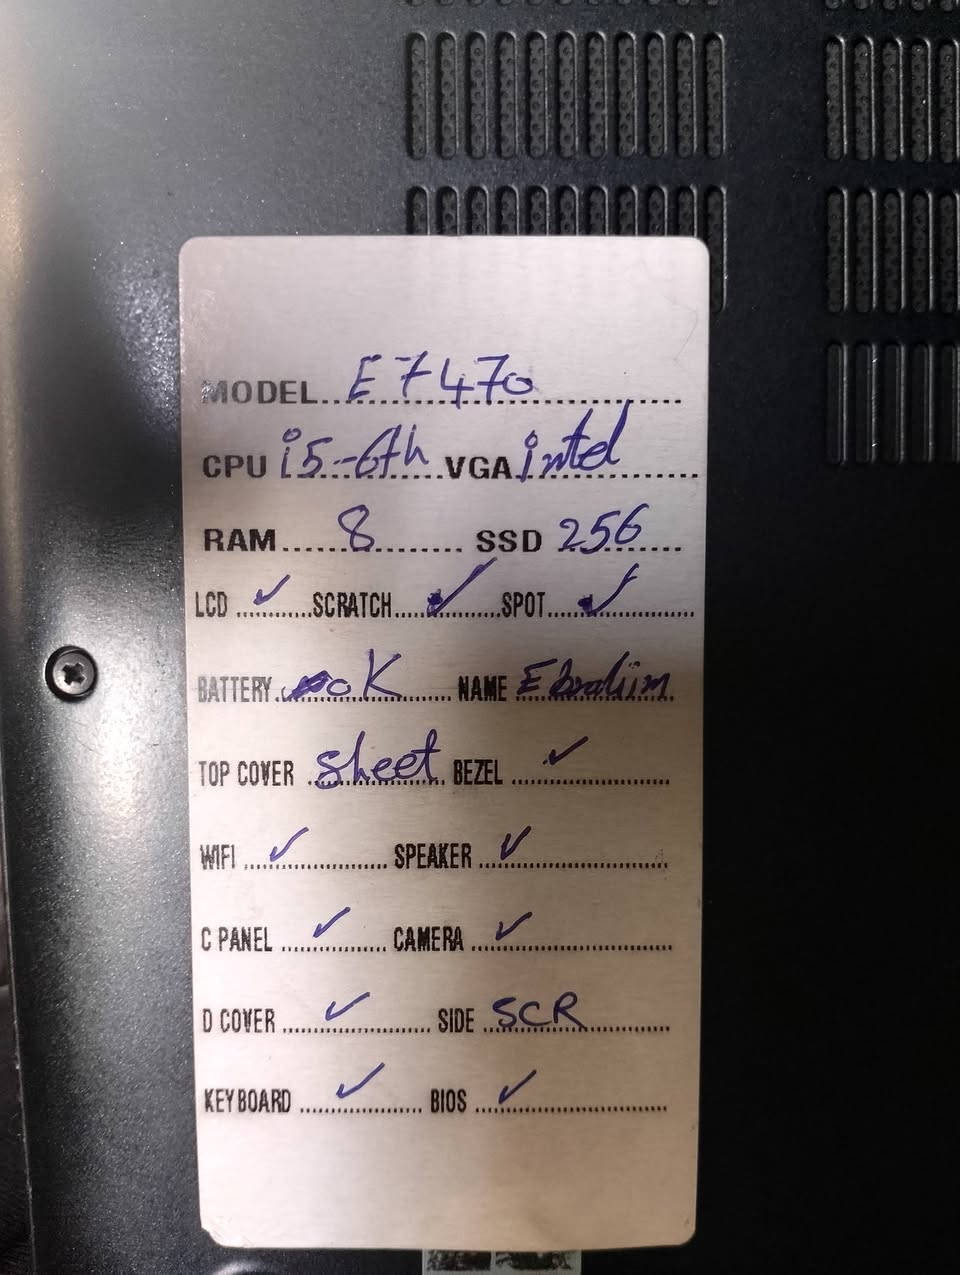 MODEL E7470
CPU i5-6th VGA intel
RAM 8 SSD 256
LCD ✓ SCRATCH ✓ SPOT ✓
BATTERY OK NAME Ebrahim
TOP COVER sheet BEZEL ✓
WIFI ✓ SPEAKER ✓
C PANEL ✓ CAMERA ✓
D COVER ✓ SIDE SCR
KEYBOARD ✓ BIOS ✓